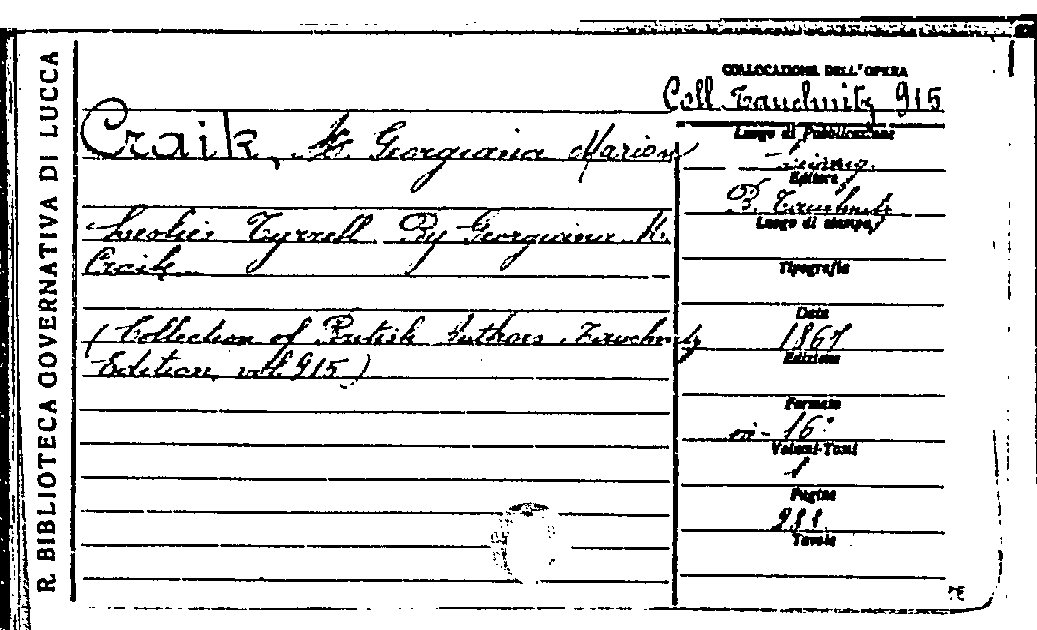 R. BIBLIOTECA GOVERNATIVA DI LUCCA
COLLOCAZIONE DELL'OPERA
Coll. Tauchnitz 915
Craik, Georgiana Marion
Leslie Tyrrell By Georgiana M.
Craik
(Collection of British Authors Tauchnitz
Edition vol. 915)
Luogo di Pubblicazione
Editore
B. Tauchnitz
Luogo di stampa
Tipografia
Data
1867
Edizione
Formato
in-16°
Volumi-Tomi
1
Pagine
288
Tavole